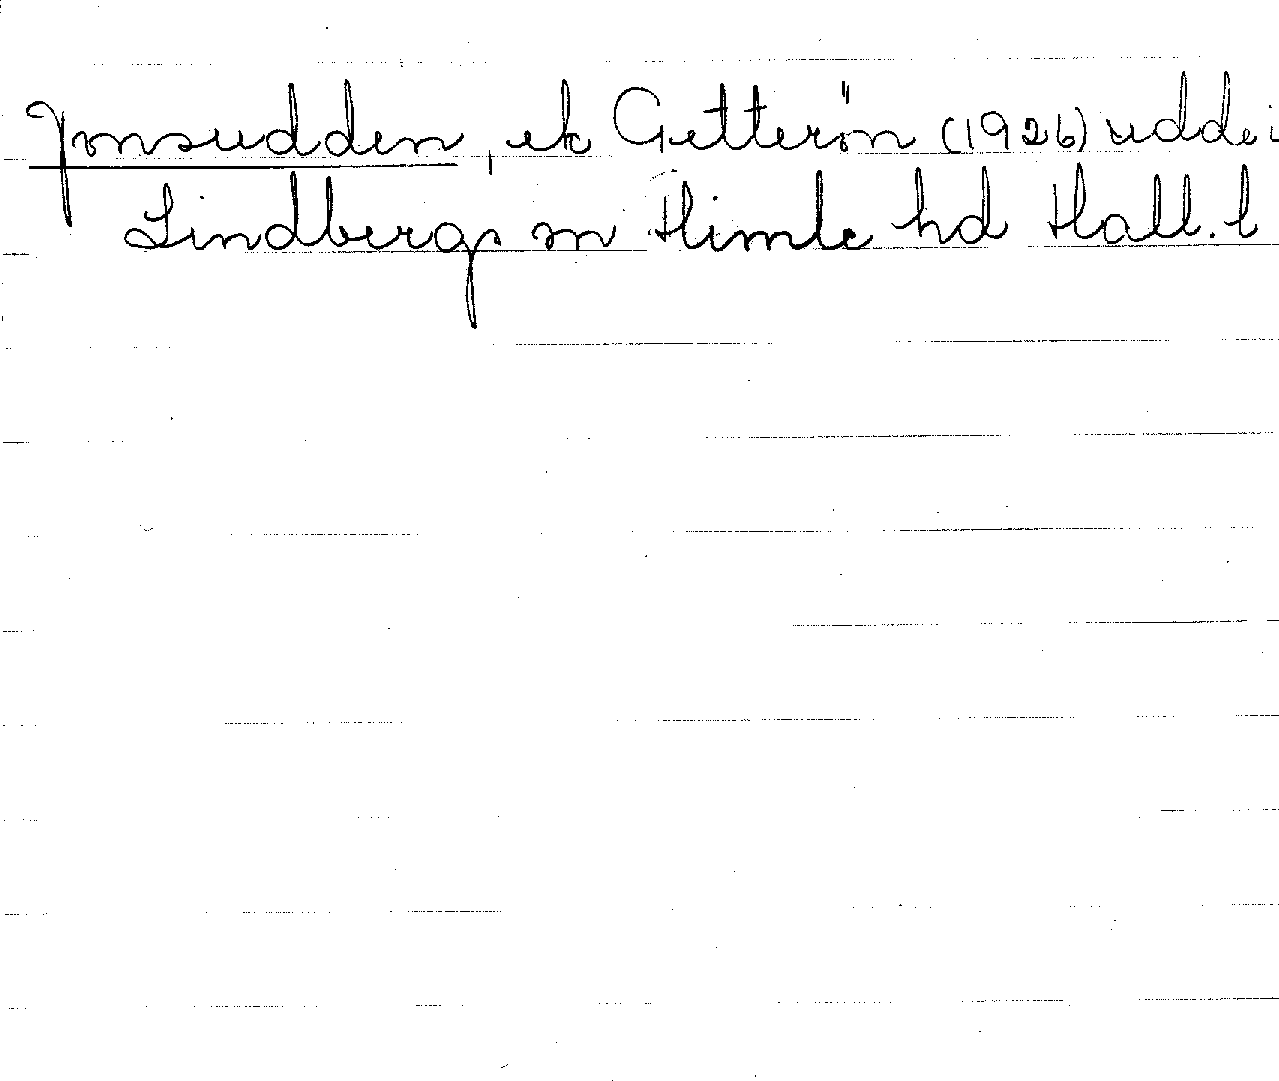 Jonsudden, ek Getterön (1926) udde i
Lindbergs sn Himle hd Hall. l